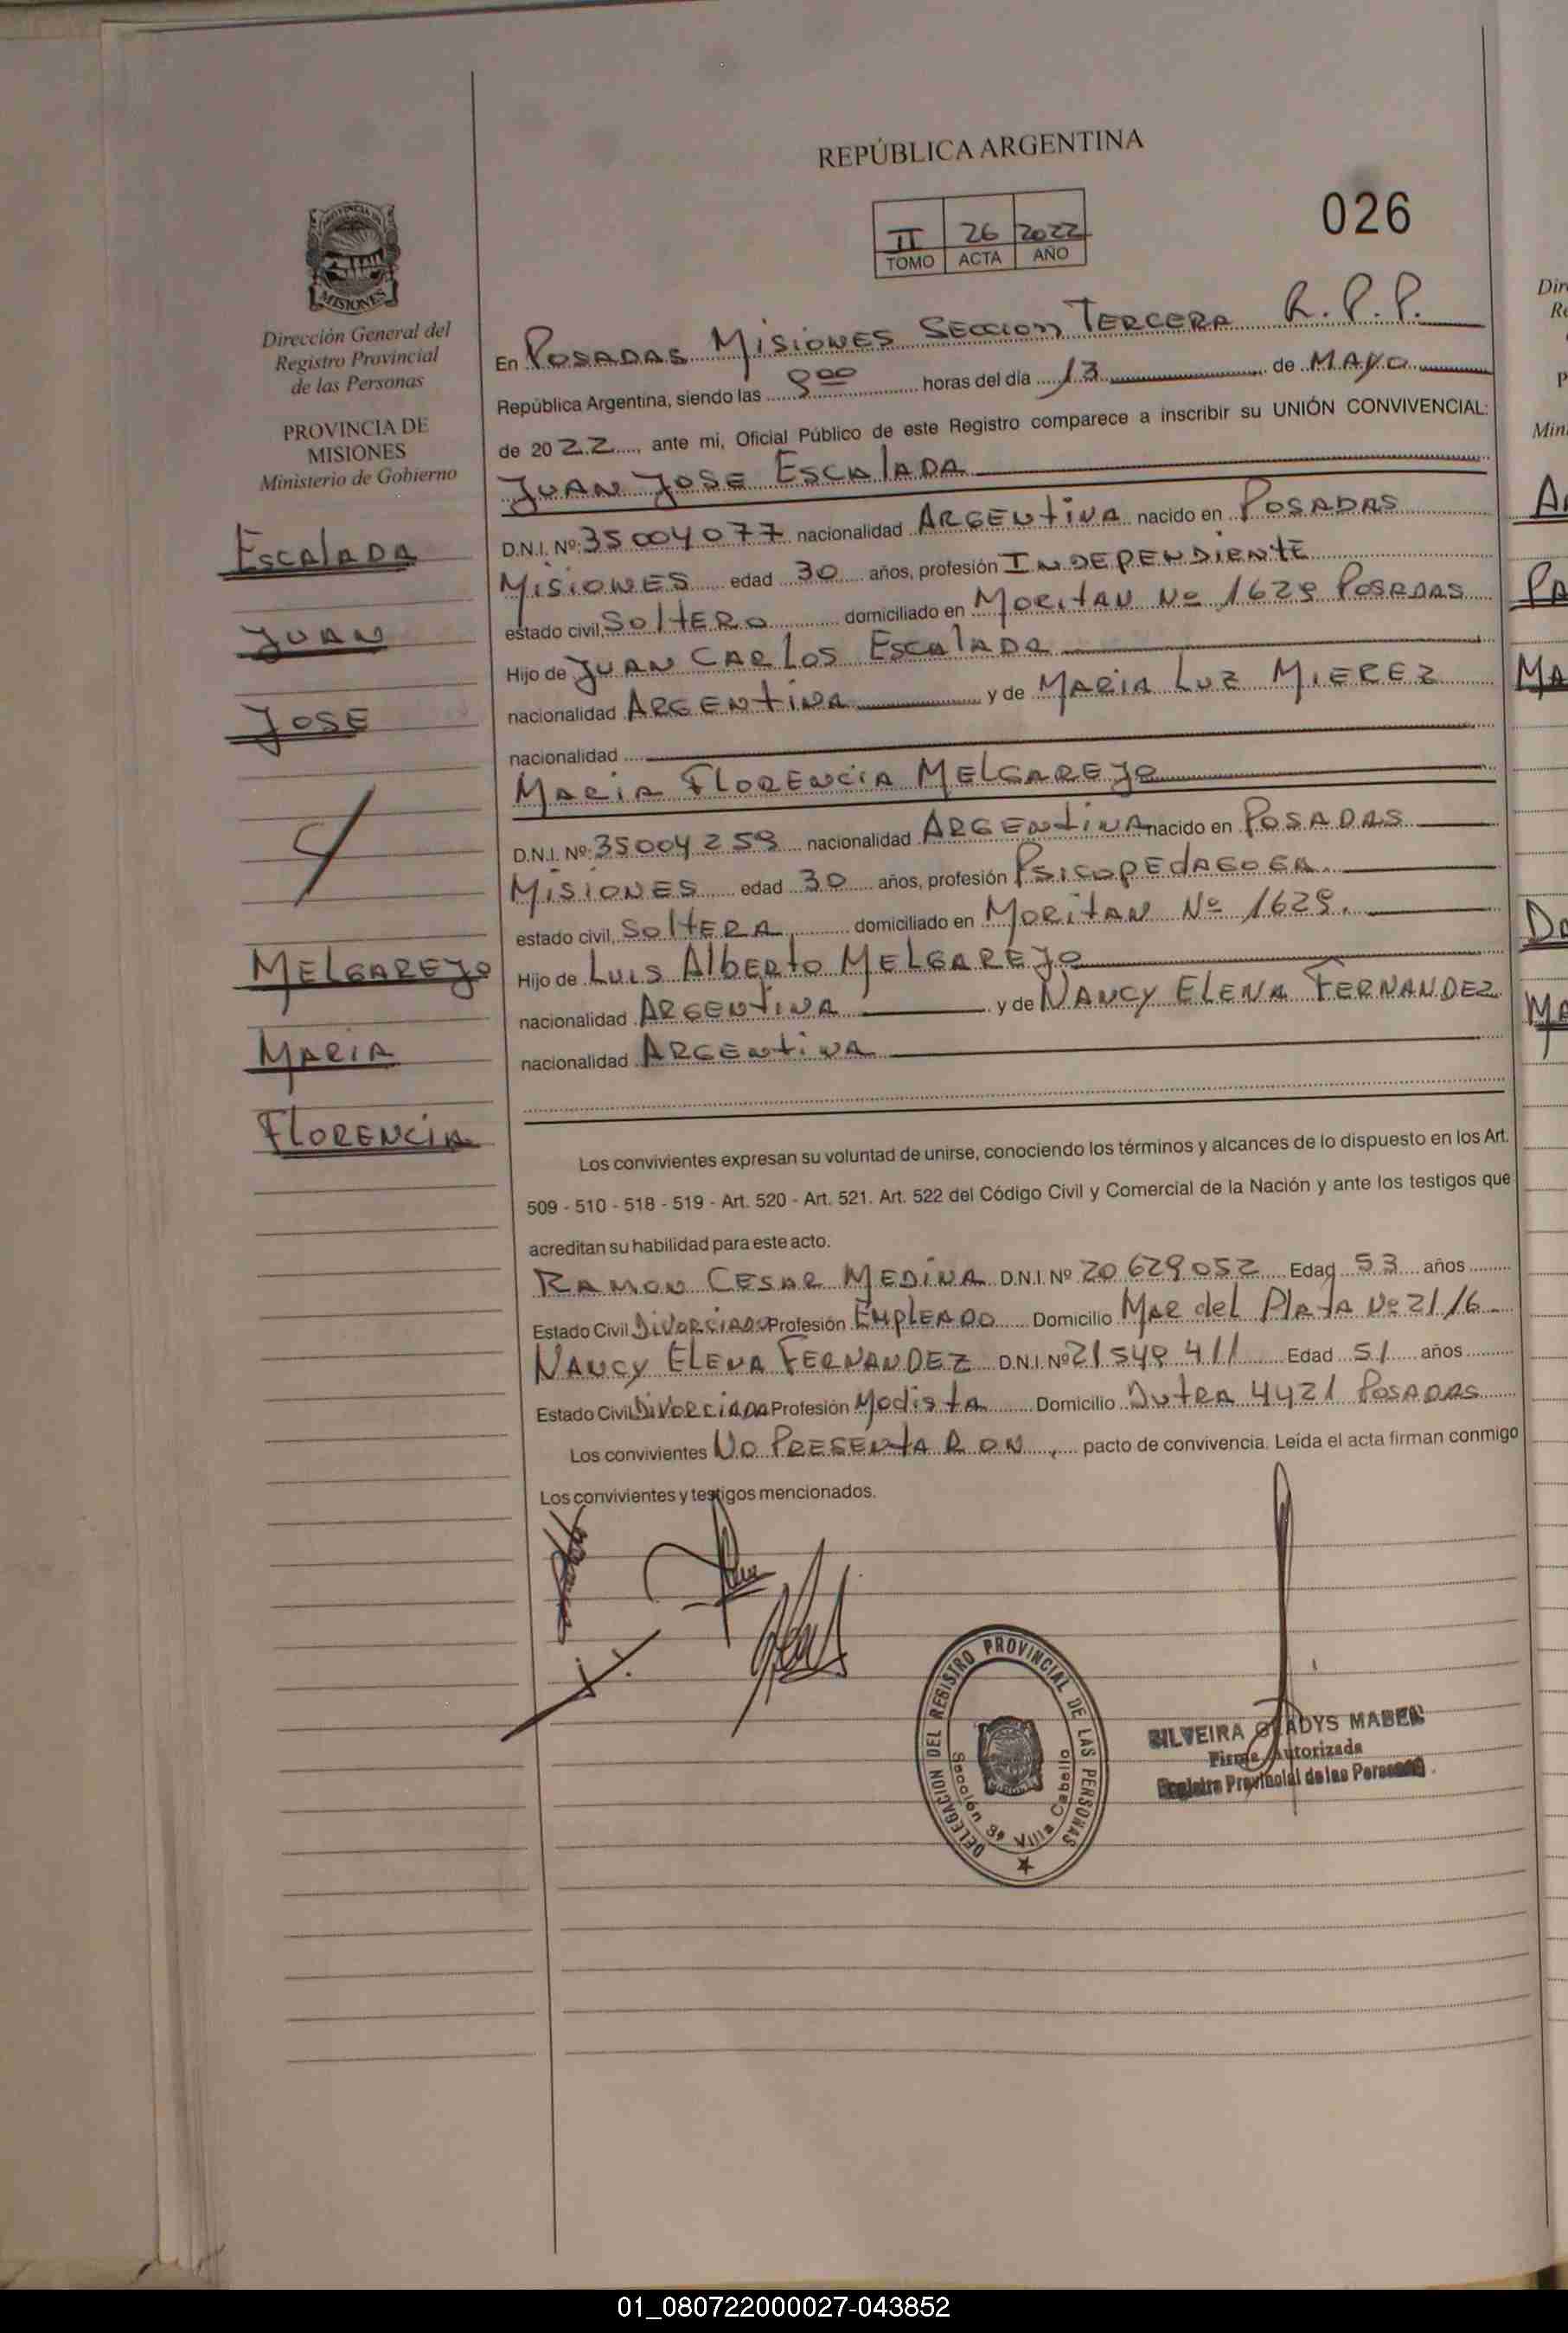 REPÚBLICA ARGENTINA
026
II 26 2022
TOMO ACTA AÑO
MISIONES
Dirección General del
Registro Provincial
de las Personas
PROVINCIA DE
MISIONES
Ministerio de Gobierno
ESCALADA
JUAN
JOSE
Y
MELGAREJO
MARIA
FLORENCIA
En POSADAS MISIONES SECCION TERCERA R.P.P.
República Argentina, siendo las 8 00 horas del día 13 de MAYO
de 2022, ante mi, Oficial Público de este Registro comparece a inscribir su UNIÓN CONVIVENCIAL:
JUAN JOSE ESCALADA
D.N.I. Nº: 35004077 nacionalidad ARGENTINA nacido en POSADAS
MISIONES edad 30 años, profesión INDEPENDIENTE
estado civil, SOLTERO domiciliado en MORITAN Nº 1629 POSADAS
Hijo de JUAN CARLOS ESCALADA
nacionalidad ARGENTINA y de MARIA LUZ MIEREZ
nacionalidad
MARIA FLORENCIA MELGAREJO
D.N.I. Nº: 35004259 nacionalidad ARGENTINA nacido en POSADAS
MISIONES edad 30 años, profesión PSICOPEDAGOGA.
estado civil, SOLTERA domiciliado en MORITAN Nº 1629.
Hijo de LUIS ALBERTO MELGAREJO
nacionalidad ARGENTINA y de NANCY ELENA FERNANDEZ
nacionalidad ARGENTINA
Los convivientes expresan su voluntad de unirse, conociendo los términos y alcances de lo dispuesto en los Art.
509 - 510 - 518 - 519 - Art. 520 - Art. 521. Art. 522 del Código Civil y Comercial de la Nación y ante los testigos que
acreditan su habilidad para este acto.
RAMON CESAR MEDINA D.N.I. Nº 20629052 Edad 53 años
Estado Civil DIVORCIADO Profesión EMPLEADO Domicilio MAR del PLATA Nº 2116
NANCY ELENA FERNANDEZ D.N.I. Nº 21549411 Edad 51 años
Estado Civil DIVORCIADA Profesión Modista Domicilio DUTRA 4421 POSADAS
Los convivientes NO PRESENTARON, pacto de convivencia. Leída el acta firman conmigo
Los convivientes y testigos mencionados.
DELEGACION DEL REGISTRO PROVINCIAL DE LAS PERSONAS
Sección 3ª Villa Cabello
SILVEIRA GLADYS MABEL
Firma Autorizada
Registro Provincial de las Personas
01_080722000027-043852